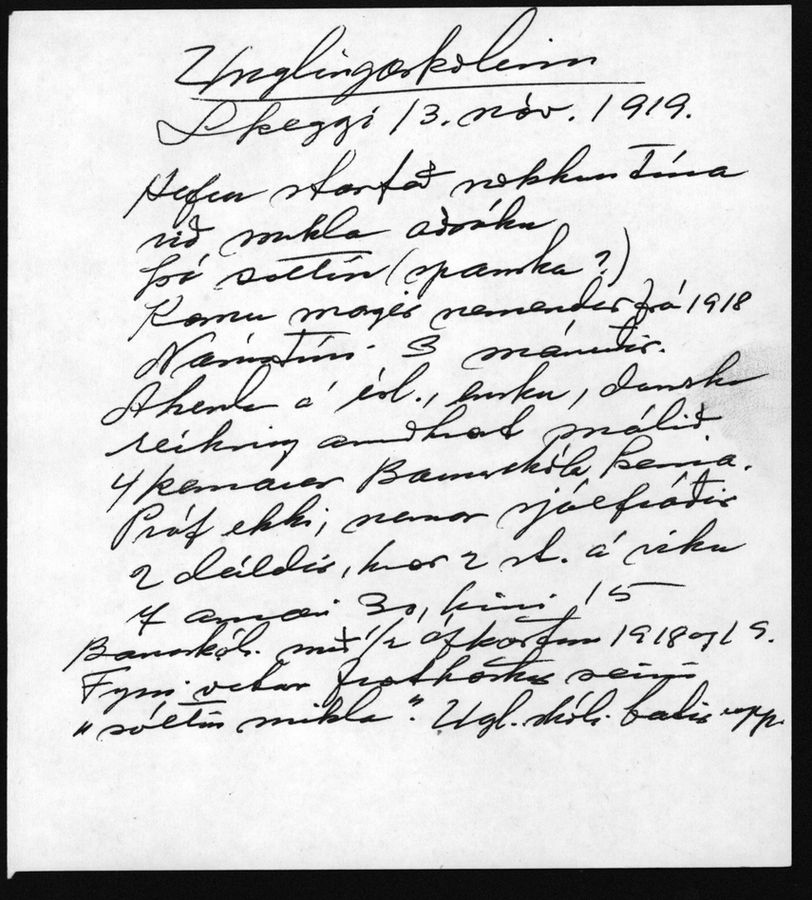 Unglingaskólinn
Skeggi 13. nóv. 1919.
Hefur starfað nokkurn tíma
við mikla aðsókn
þó sóttin (spanska?)
Komu margir nemendur frá 1918
Námstími 3 mánuðir.
Áhersla á ísl., ensku, dönsku
reikning annað hvort málið.
4 kennarar Barnaskóla kenna.
Próf ekki, nema sjálfráðir
2 deildir, hvor 2 st. á viku
Í annari 30, hinni 15
Barnaskól. með 1/2 afköstum 1918 og 19.
Fyrri vetur frosthörkur seinni
"sóttin mikla". Ugl. skóli bætir upp.